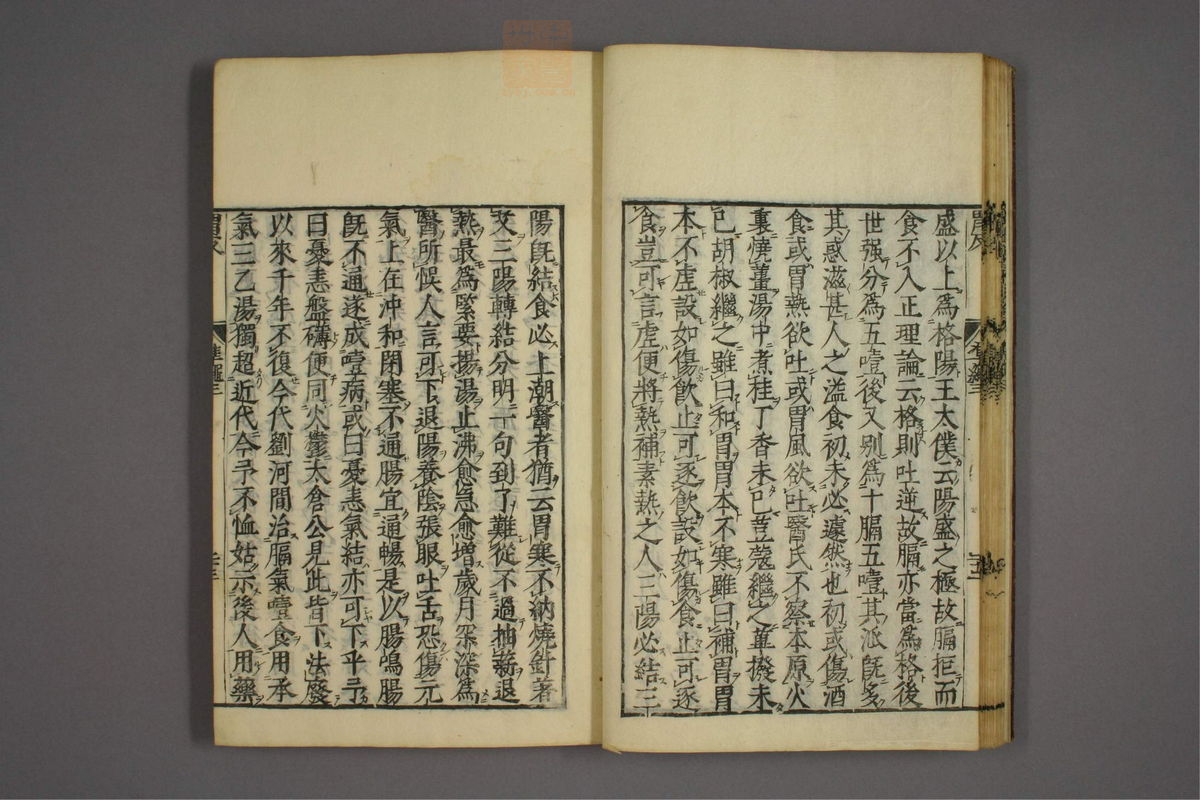 盛以上爲格陽王太僕云陽盛之極故膈拒而
食不入正理論云格則吐逆故膈亦當爲格後
世强分爲五噎後又別爲十膈五噎其派既多
其惑滋甚人之溢食初未必遽然也初或傷酒
食或胃熱欲吐或胃風欲吐醫氏不察本原火
裏燒薑湯中煮桂丁香未已荳蔲繼之蓽撥未
已胡椒繼之雖曰和胃胃本不寒雖曰補胃胃
本不虛設如傷飮止可逐飮設如傷食止可逐
食豈可言虛便將熱補素熱之人三陽必結三
陽既結食必上潮醫者猶云胃寒不納燒針著
艾三陽轉結分明一句到了難從不過抽薪退
熱最爲緊要揚湯止沸愈急愈增歲月深爲
醫所悞人言可下退陽養陰張眼吐舌恐傷元
氣上在冲和閉塞不通腸宜通暢是以腸鳴腸
既不通遂成噎病或曰憂恚氣結亦可下乎予
曰憂恚盤礴便同火鬱太倉公見此皆下法廢
以來千年不復今代劉河間治膈氣噎食用承
氣三乙湯獨超近代今予不恤姑示後人用藥